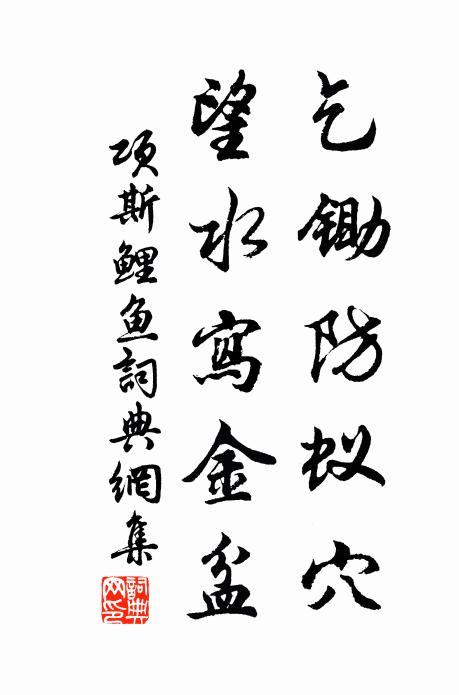 乞锄防蚁穴
望水寫金盆
项斯鲤魚詞典網集
詞典网印